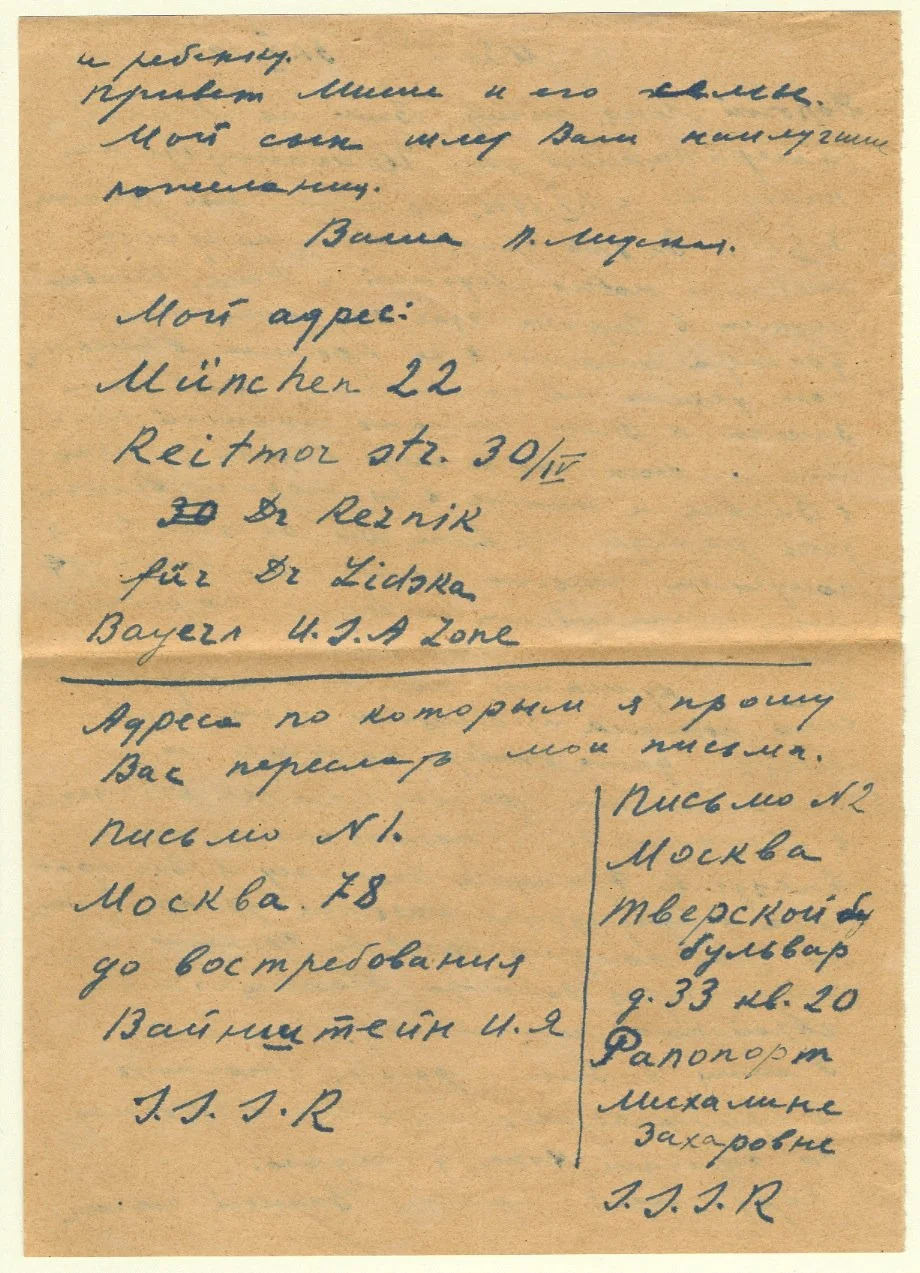 и ребенку.
Привет Мише и его семьи.
Мой сын шлет Вам наилучшие
пожелания.
Ваша П. Лидская.
Мой адрес:
München 22
Reitmor str. 30/IV
30 Dr Reznik
für Dr Lidska
Bayern U.S.A Zone
Адреса по которым я прошу
Вас переслать мои письма.
Письмо N1.
Москва 78
до востребования
Вайнштейн И.Я
S.S.S.R
Письмо N2
Москва
Тверской бу
бульвар
д. 33 кв. 20
Рапопорт
Михалине
Захаровне
S.S.S.R